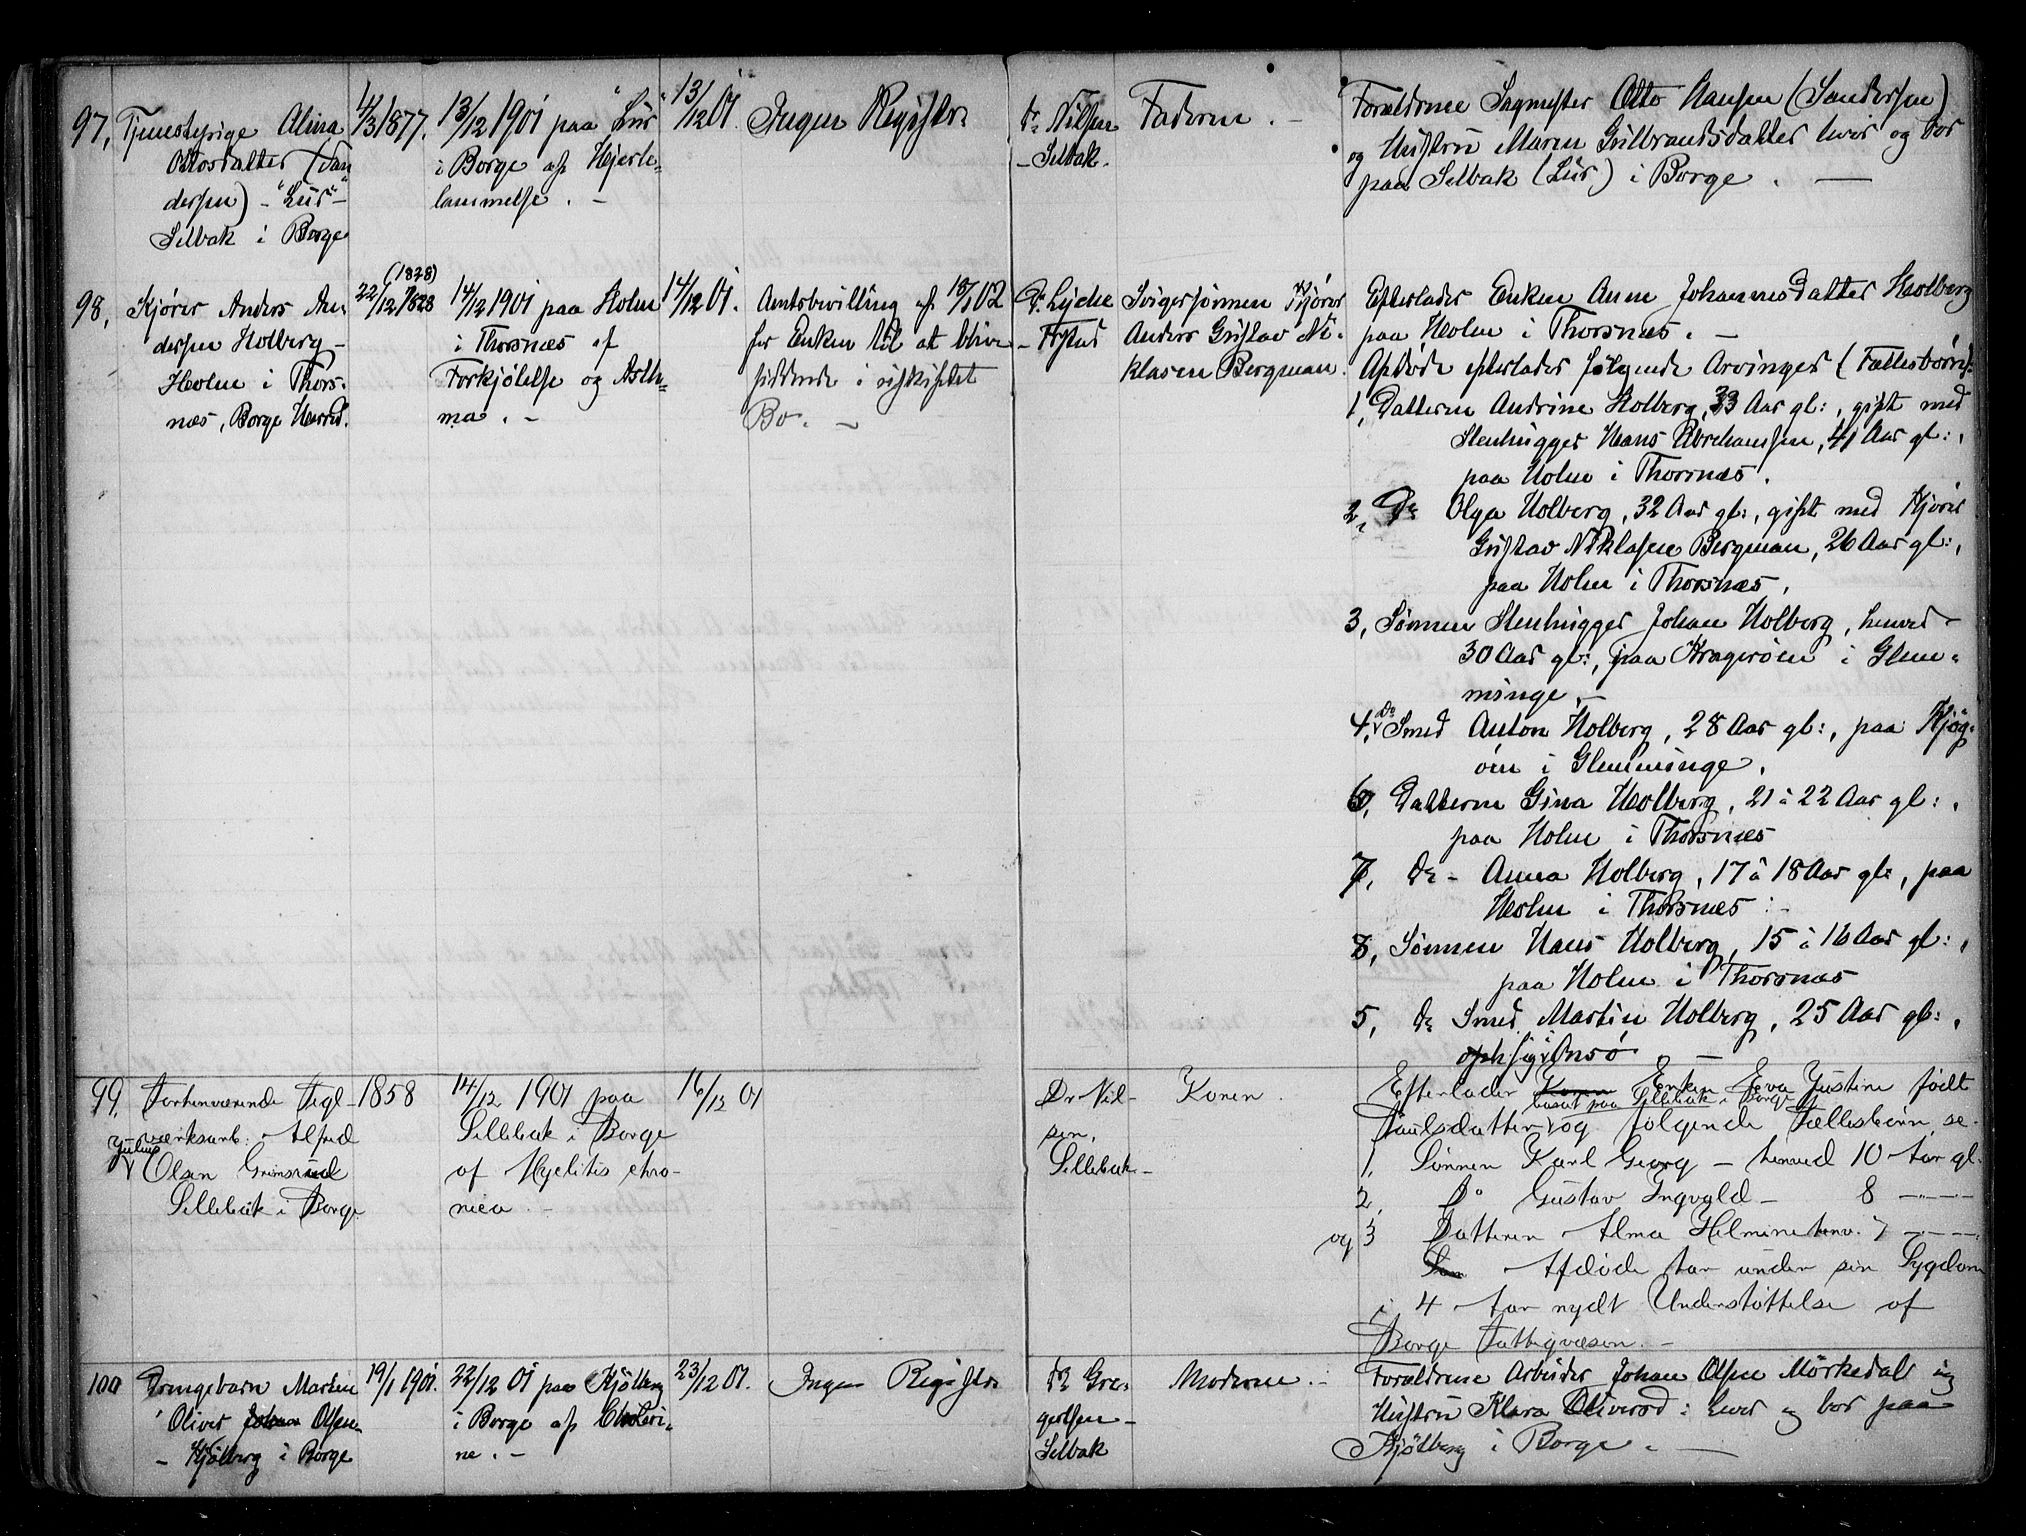 97, Tjenestepige Alina
Ottosdatter (San-
dersen) - "Lur" -
Selbak i Borge
4/3 1877.
13/12 1901 paa "Lur"
i Borge af Hjerte-
lammelse. -
13/12 01.
Ingen Registr.
Dr. Nilsen
- Selbak.
Faderen. -
Forældrene Sagmester Otto Hansen (Sandersen)
og Hustru Maren Gulbrandsdatter lever og bor
paa Selbak (Lur) i Borge. -
98, Kjører Anders An-
dersen Holberg -
Holm i Thors-
næs, Borge Herred.
(1828)
22/12 1828
14/12 1901 paa Holm
i Thorsnæs af
Forkjölelse og Asth-
ma. -
14/12 01.
Amtsbevilling af 18/1 02
for Enken til at blive
siddende i uskiftet
Bo. -
Dr. Lyche
- Frstad
Svigersönnen Kjörer
Anders Gustav Ni-
klasen Bergman.
Efterlader Enken Anne Johannesdatter Holberg
paa Holm i Thorsnæs. -
Afdöde efterlader følgende Arvinger (Fællesbörn):
1, Datteren Andrine Holberg, 33 Aar gl:, gift med
Stenhugger Hans Abrahamsen, 41 Aar gl:,
paa Holm i Thorsnæs.
2, Do Olga Holberg, 32 Aar gl:, gift med Kjörer
Gustav Niklasen Bergman, 26 Aar gl:,
paa Holm i Thorsnæs.
3, Sönnen Stenhugger Johan Holberg, henved
30 Aar gl:, paa Kragerøen i Glem-
minge. -
4, Do Smed Anton Holberg, 28 Aar gl:, paa Kjøg-
öen i Glemminge.
6, Datteren Gina Holberg, 21 à 22 Aar gl:,
paa Holm i Thorsnæs
7, Do - Anna Holberg, 17 à 18 Aar gl:, paa
Holm i Thorsnæs: -
8, Sönnen Hans Holberg, 15 à 16 Aar gl:,
paa Holm i Thorsnæs
5, Do Smed Martin Holberg, 25 Aar gl:,
opk sig i Onsö. -
99. Forhenværende Tegl-
værksarb. Alfred
Julius
Olsen Grimsrud
Sellebak i Borge
1858
14/12 1901 paa
Sellebak i Borge
af Myelitis chro-
nica. -
16/12 01
Dr Nil-
sen,
Sellebak -
Konen.
Efterlader Konen Enken Eeva Justine födt
bosat paa Sellebak i Borge
Paulsdatter og følgende Fællesbörn, se.
1, Sönnen Karl Georg - henved 10 Aar gl.
2, Do Gustav Ingvald - 8 -"-
og 3 Datteren Alma Helmine henv. 7 -"-
Afdöde har under sin Sygdom
i 4 Aar nydt Understöttelse af
Borge Fattigvæsen. -
100 Drengebarn Marten
Oliver Johan Olsen -
- Kjölberg i Borge
19/1 1901.
22/12 01 paa Kjölberg
i Borge af Choleri-
ne. -
23/12 01.
Ingen Registr.
Dr Gre-
gersen -
Selbak
Moderen. -
Forældrene Arbeider Johan Olsen Mörkedal og
Hustru Klara Oliverod: lever og bor paa
Kjölberg i Borge. -